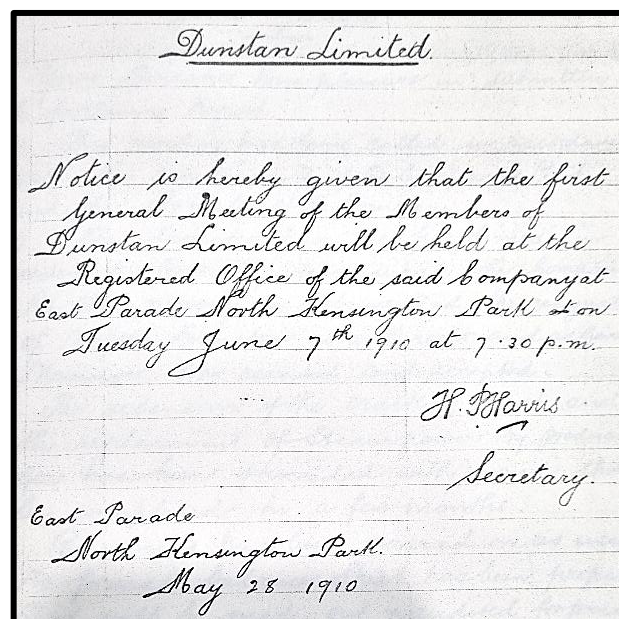 Dunstan Limited.
Notice is hereby given that the first
General Meeting of the Members of
Dunstan Limited will be held at the
Registered Office of the said Company at
East Parade North Kensington Park & on
Tuesday June 7th 1910 at 7.30 p.m.
H. P. Harris
Secretary.
East Parade
North Kensington Park.
May 28 1910